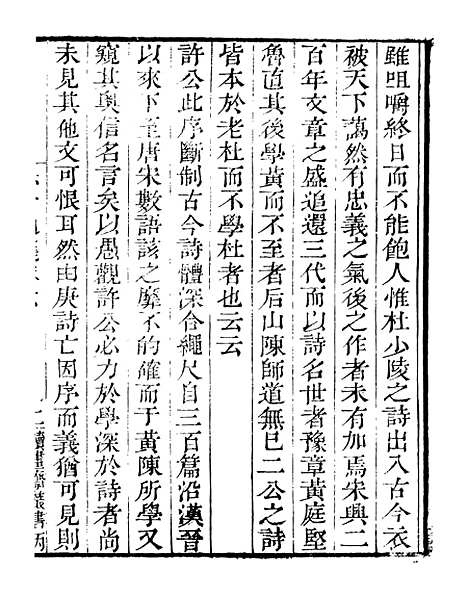 雖咀嚼終日而不能飽人惟杜少陵之詩出入古今衣
被天下藹然有忠義之氣後之作者未有加焉宋興二
百年文章之盛追還三代而以詩名世者豫章黃庭堅
魯直其後學黃而不至者后山陳師道無已二公之詩
皆本於老杜而不學杜者也云云
許公此序斷制古今詩體深合繩尺自三百篇沿漢晉
以來下至唐宋數語該之靡不的確而于黃陳所學又
窺其奧信名言矣以愚觀許公必力於學深於詩者尚
未見其他文可恨耳然由庚詩亡因序而義猶可見則
讀畫齋叢書丙